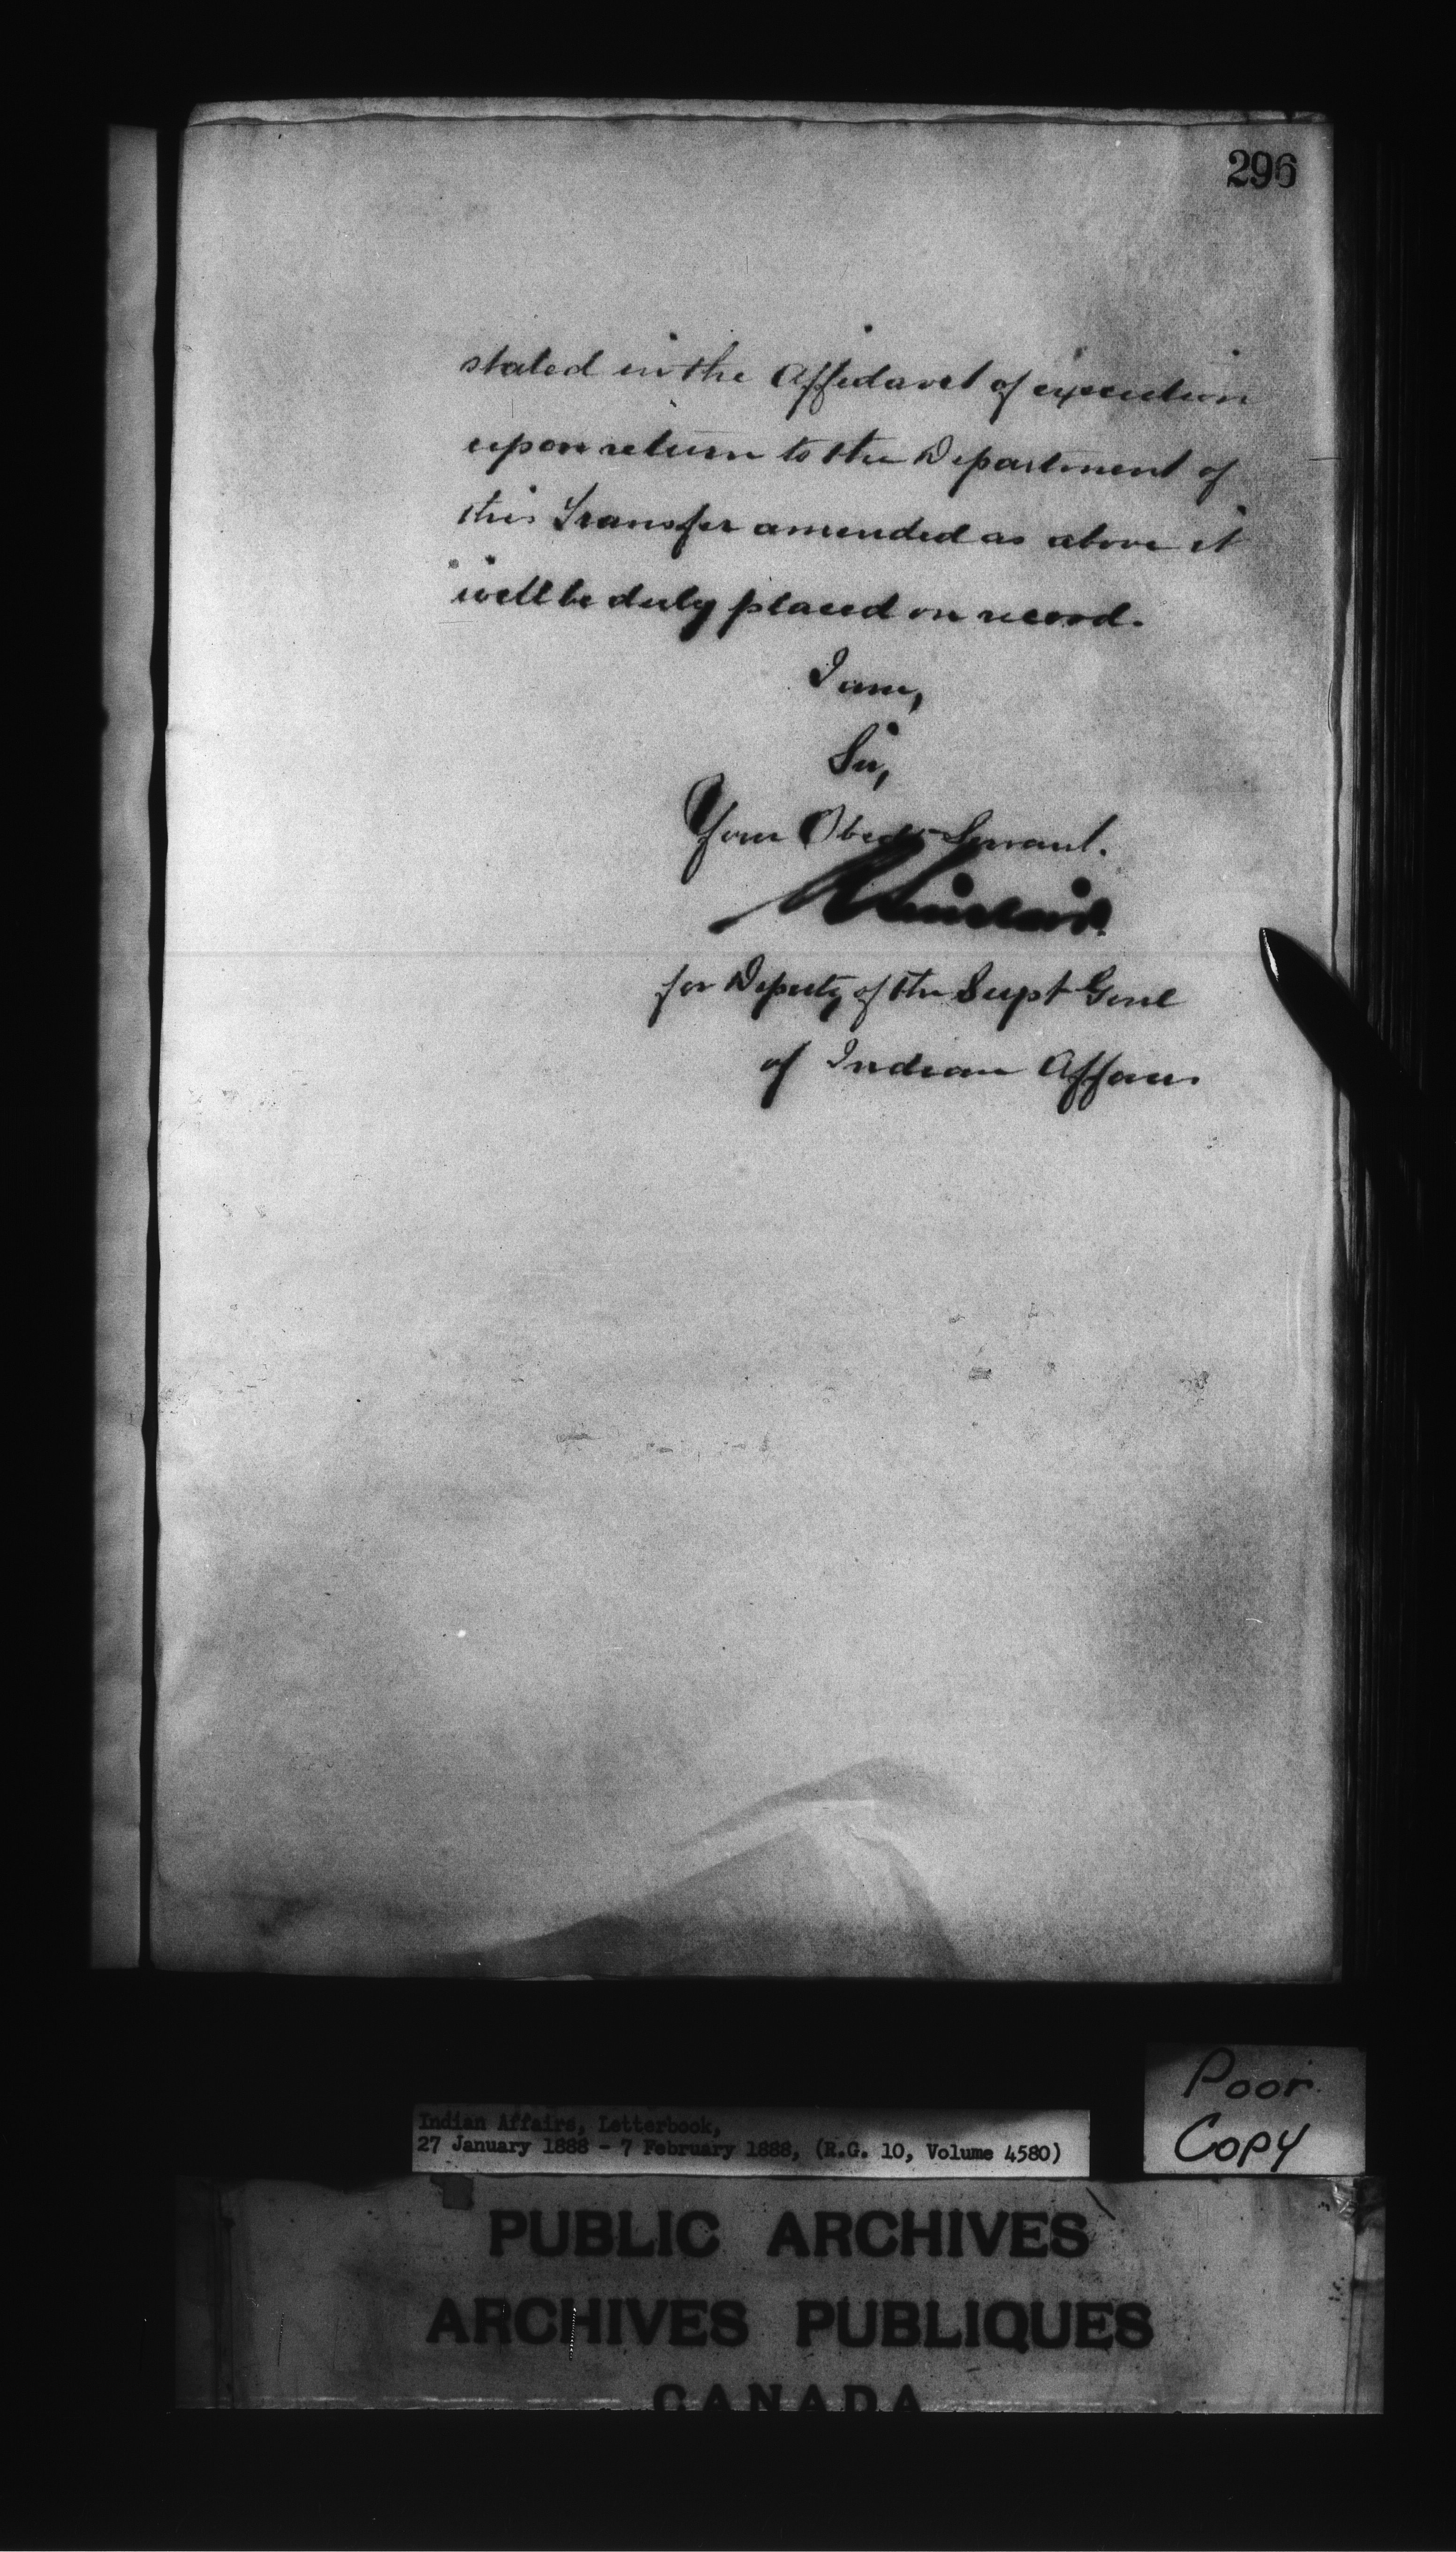 296
stated in the Affidavit of execution
upon return to the Department of
this Transfer amended as above it
will be duly placed on record.
I am,
Sir,
Your Obedt Servant.
for Deputy of the Supt Genl
of Indian Affairs
Poor
Copy
Indian Affairs, Letterbook,
27 January 1888 - 7 February 1888, (R.G. 10, Volume 4580)
PUBLIC ARCHIVES
ARCHIVES PUBLIQUES
CANADA